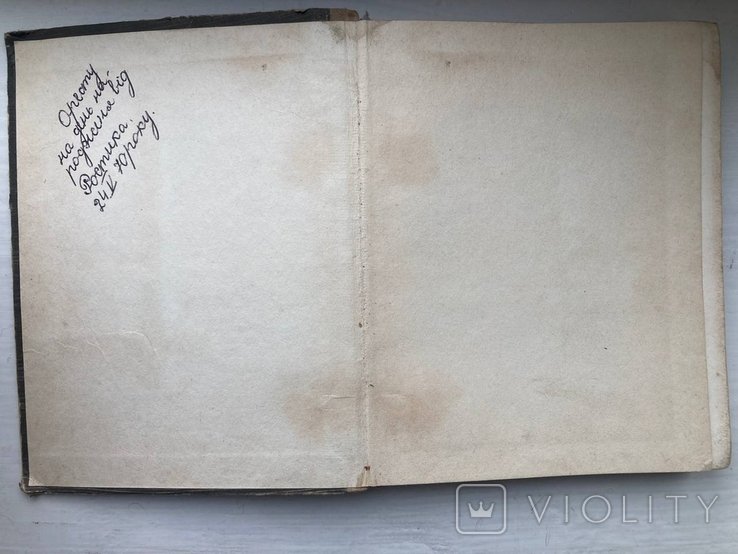 Оресту
на день на-
родження від
Ростика.
24 V 70 року.
VIOLITY